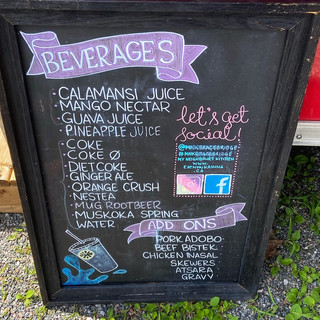 BEVERAGES
· CALAMANSI JUICE
· MANGO NECTAR
· GUAVA JUICE
· PINEAPPLE JUICE
· COKE
· COKE Ø
· DIET COKE
· GINGER ALE
· ORANGE CRUSH
· NESTEA
· MUG ROOTBEER
· MUSKOKA SPRING
WATER
let's get
social!
WWW.
.CA
f
ADD ONS
PORK ADOBO
BEEF BISTEK
CHICKEN INASAL
SKEWERS
ATSARA
GRAVY